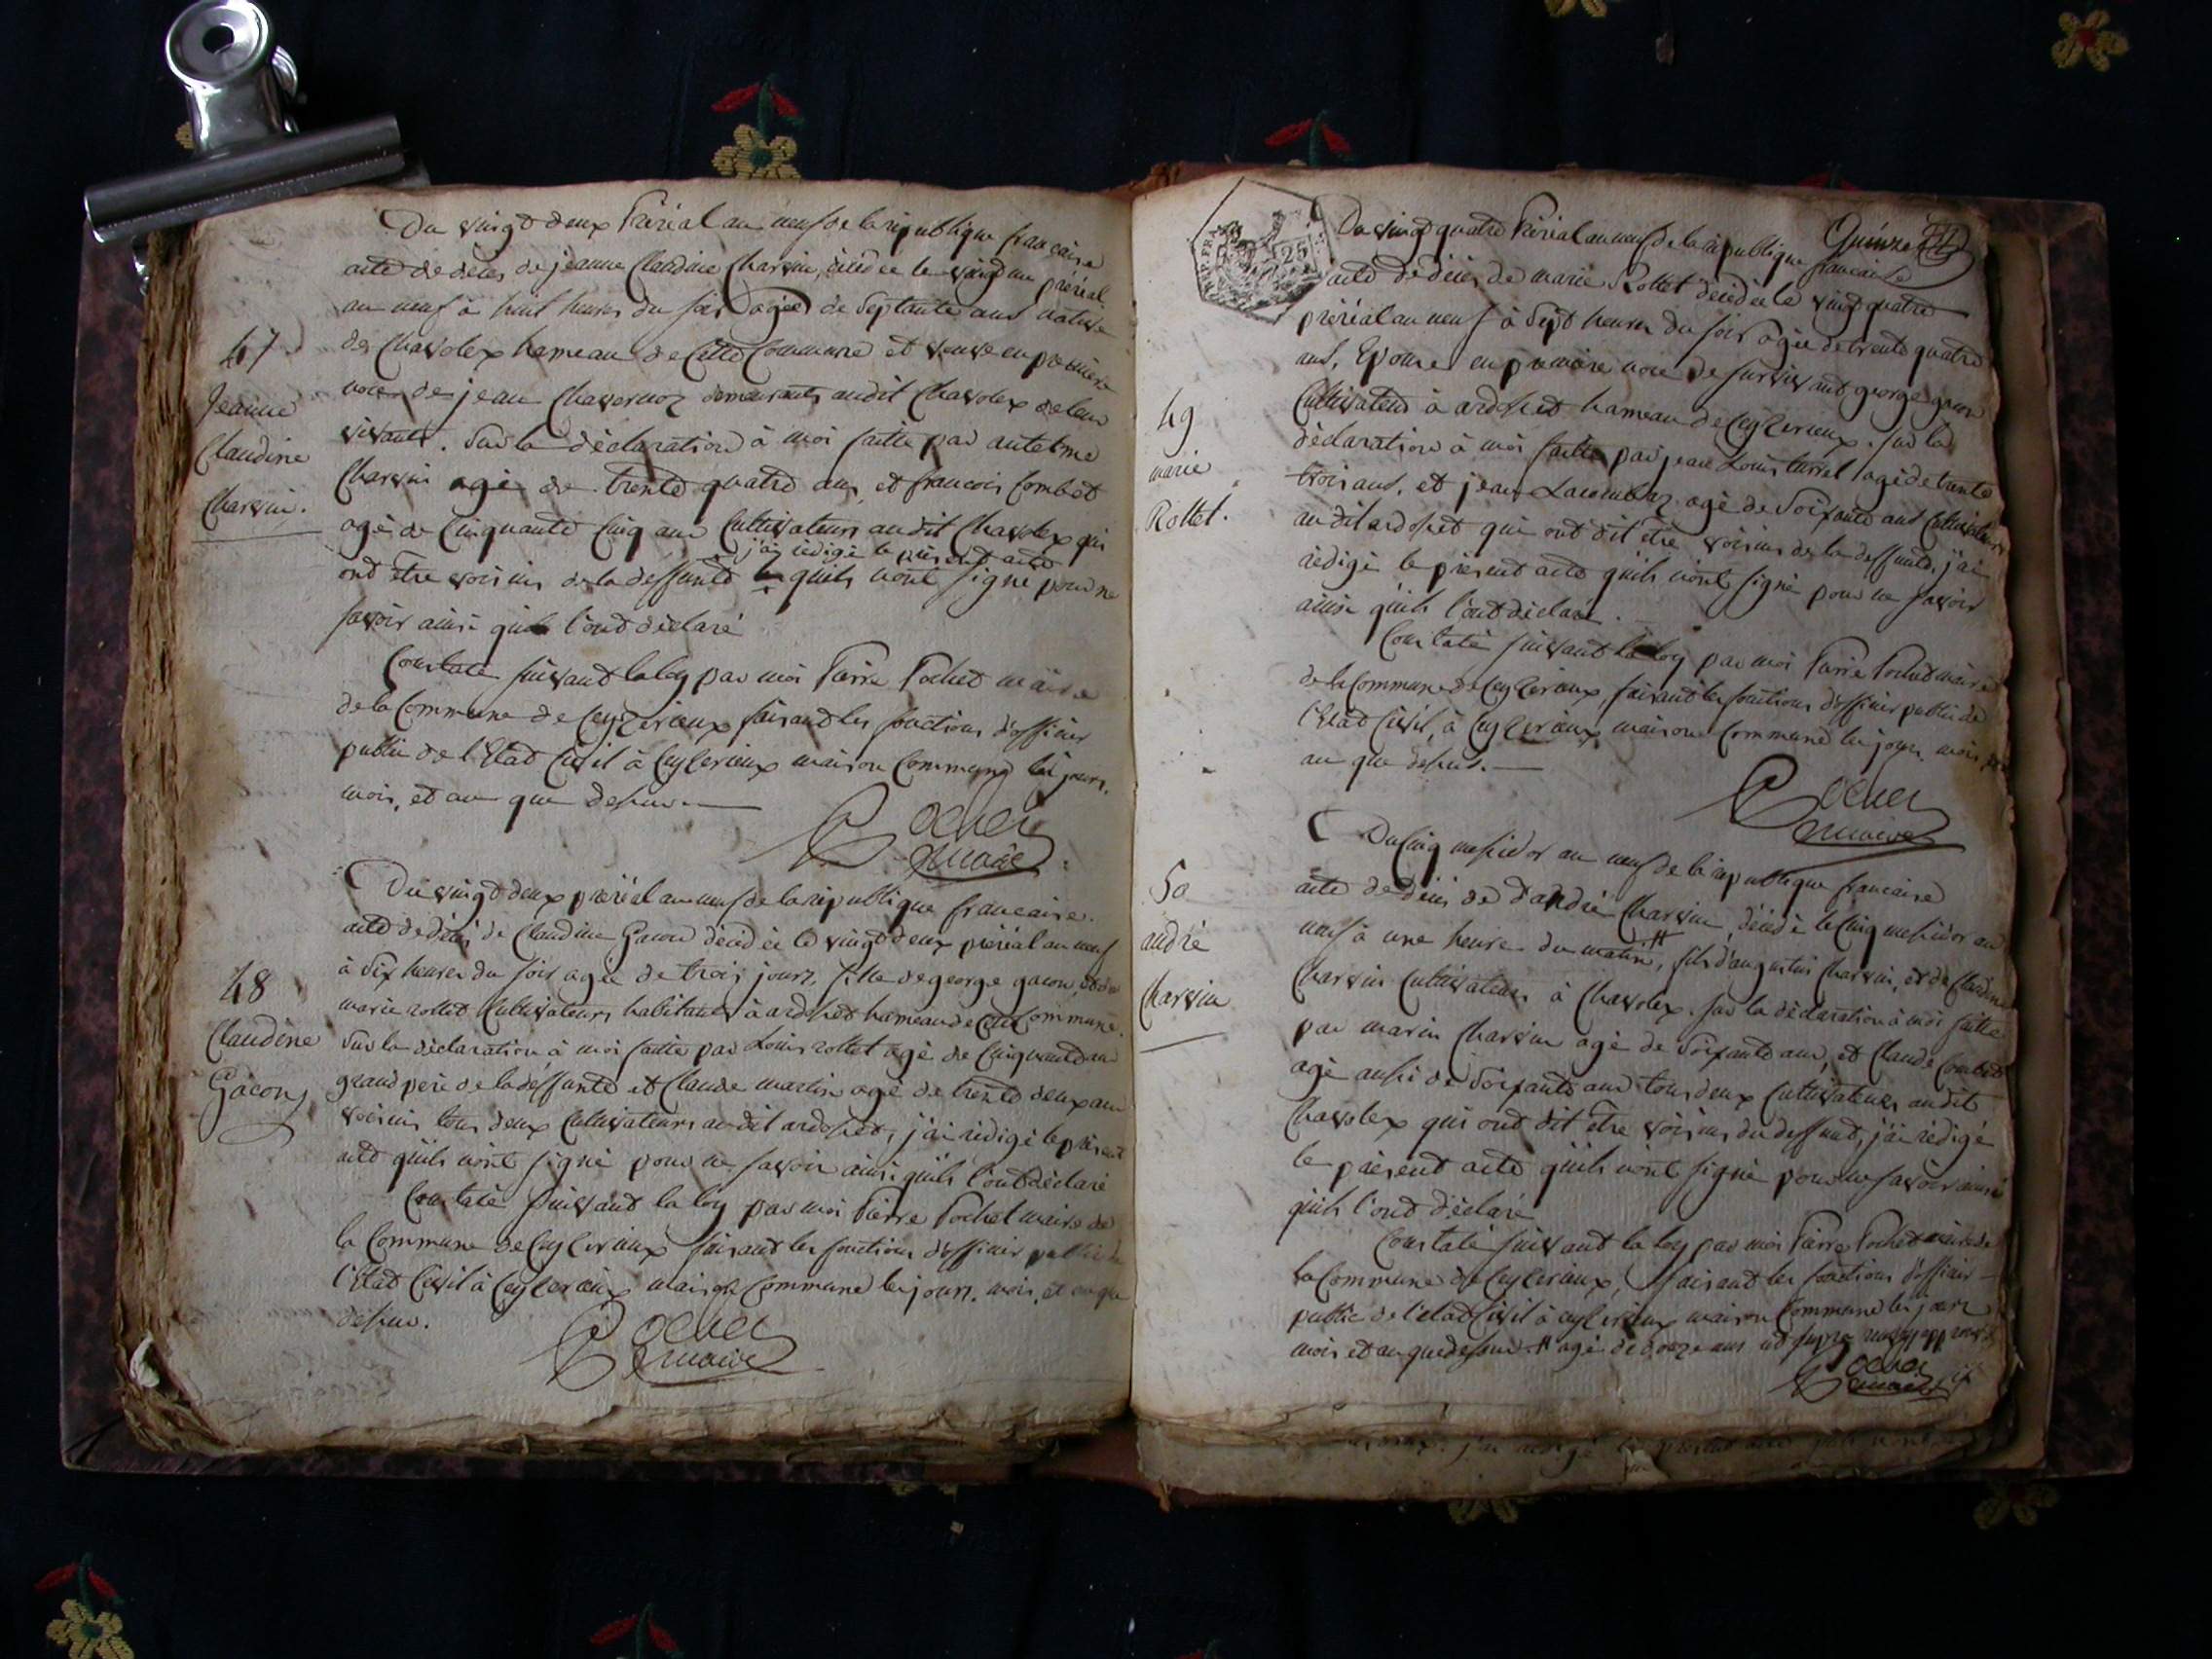 47
Jeanne
Claudine
Charvin.
Du vingt deux Prérial an neuf de la république francaise
acte de décès de jeanne Claudine Charvin, décédée le vingt un préréal
an neuf à huit heures du soir agée de Septante ans native
de Chavolex hameau de Cette Commune et veuve en première
noce de jean Chavernoz demeurants audit Chavolex de leur
vivants. Sur la déclaration à moi faitte par antelme
Charvin agé de trente quatre ans, et francois Combet
agé de Cinquante Cinq ans Cultivateurs audit Chavolex qui
j'ai rédigé le présent acte
ont être voisins de la deffunte qu'ils n'ont signé pour ne
savoir ainsi qu'ils l'ont déclaré
Constaté suivant la loy par moi Pierre Pochet maire
de la Commune de Ceyzerieux faisant les fonctions d'officier
public de l'Etat Civil à Ceyzerieux maison Commune les jours,
mois, et an que dessus.
Pochet
maire
48
Claudine
Gacon
Du vingt deux préréal an neuf de la république francaise.
acte de décès de Claudine Gacon décédée le vingt deux préréal an neuf
à Six heures du soir agée de trois jours, fille de george gacon, et de
marie rollet Cultivateurs habitants à ardosset hameau de Cette Commune.
Sur la déclaration à moi faitte par Louis rollet agé de Cinquante ans
grand père de la deffunte et Claude martin agé de trente deux ans
voisins tous deux Cultivateurs audit ardosset, j'ai rédigé le présent
acte qu'ils n'ont signé pour ne savoir ainsi qu'ils l'ont déclaré
Constaté suivant la loy par moi Pierre Pochet maire de
la Commune de Ceyzerieux faisant les fonctions d'officier public de
l'Etat Civil à Ceyzerieux maison Commune les jours, mois, et an que
dessus.
Pochet
maire
Quinze
25
49
marie
Rollet.
Du vingt quatre Prérial an neuf de la république francaise
acte de décès de marie Rollet décédée le vingt quatre
préréal an neuf à Sept heures du soir agée de trente quatre
ans, Epouse en première noce de survivant george gacon
Cultivateur à ardosset hameau de Ceyzerieux. Sur la
déclaration à moi faitte par jean Louis turrel agé de trente
trois ans, et jean Lacombaz agé de Soixante ans Cultivateurs
audit ardosset qui ont dit être voisins de la deffunte, j'ai
rédigé le présent acte qu'ils n'ont signé pour ne savoir
ainsi qu'ils l'ont déclaré.
Constaté suivant la loy par moi Pierre Pochet maire
de la Commune de Ceyzerieux, faisant les fonctions d'officier public de
l'Etat Civil, à Ceyzerieux maison Commune les jours, mois,
an que dessus.
Pochet
maire
50
andré
Charvin
Du Cinq messidor an neuf de la république francaise
acte de décès de d'andré Charvin, décédé le Cinq messidor an
neuf à une heure du matin #, fils d'augustin Charvin, et de Claudine
Charvin Cultivateurs à Chavolex. Sur la déclaration à moi faitte
par marin Charvin agé de Soixante ans, et Claude Combet
agé aussi de Soixante ans tous deux Cultivateurs audit
Chavolex qui ont dit être voisins du deffunt, j'ai rédigé
le présent acte qu'ils n'ont signé pour ne savoir ainsi
qu'ils l'ont déclaré
Constaté suivant la loy par moi Pierre Pochet maire de
la Commune de Ceyzerieux, faisant les fonctions d'officier
public de l'etat Civil à ceyzerieux maison Commune les jours
mois et an que dessus # agé de douze ans ut supra renvoy approuvé
Pochet
maire
j'ai rédigé le présent acte qu'ils n'ont